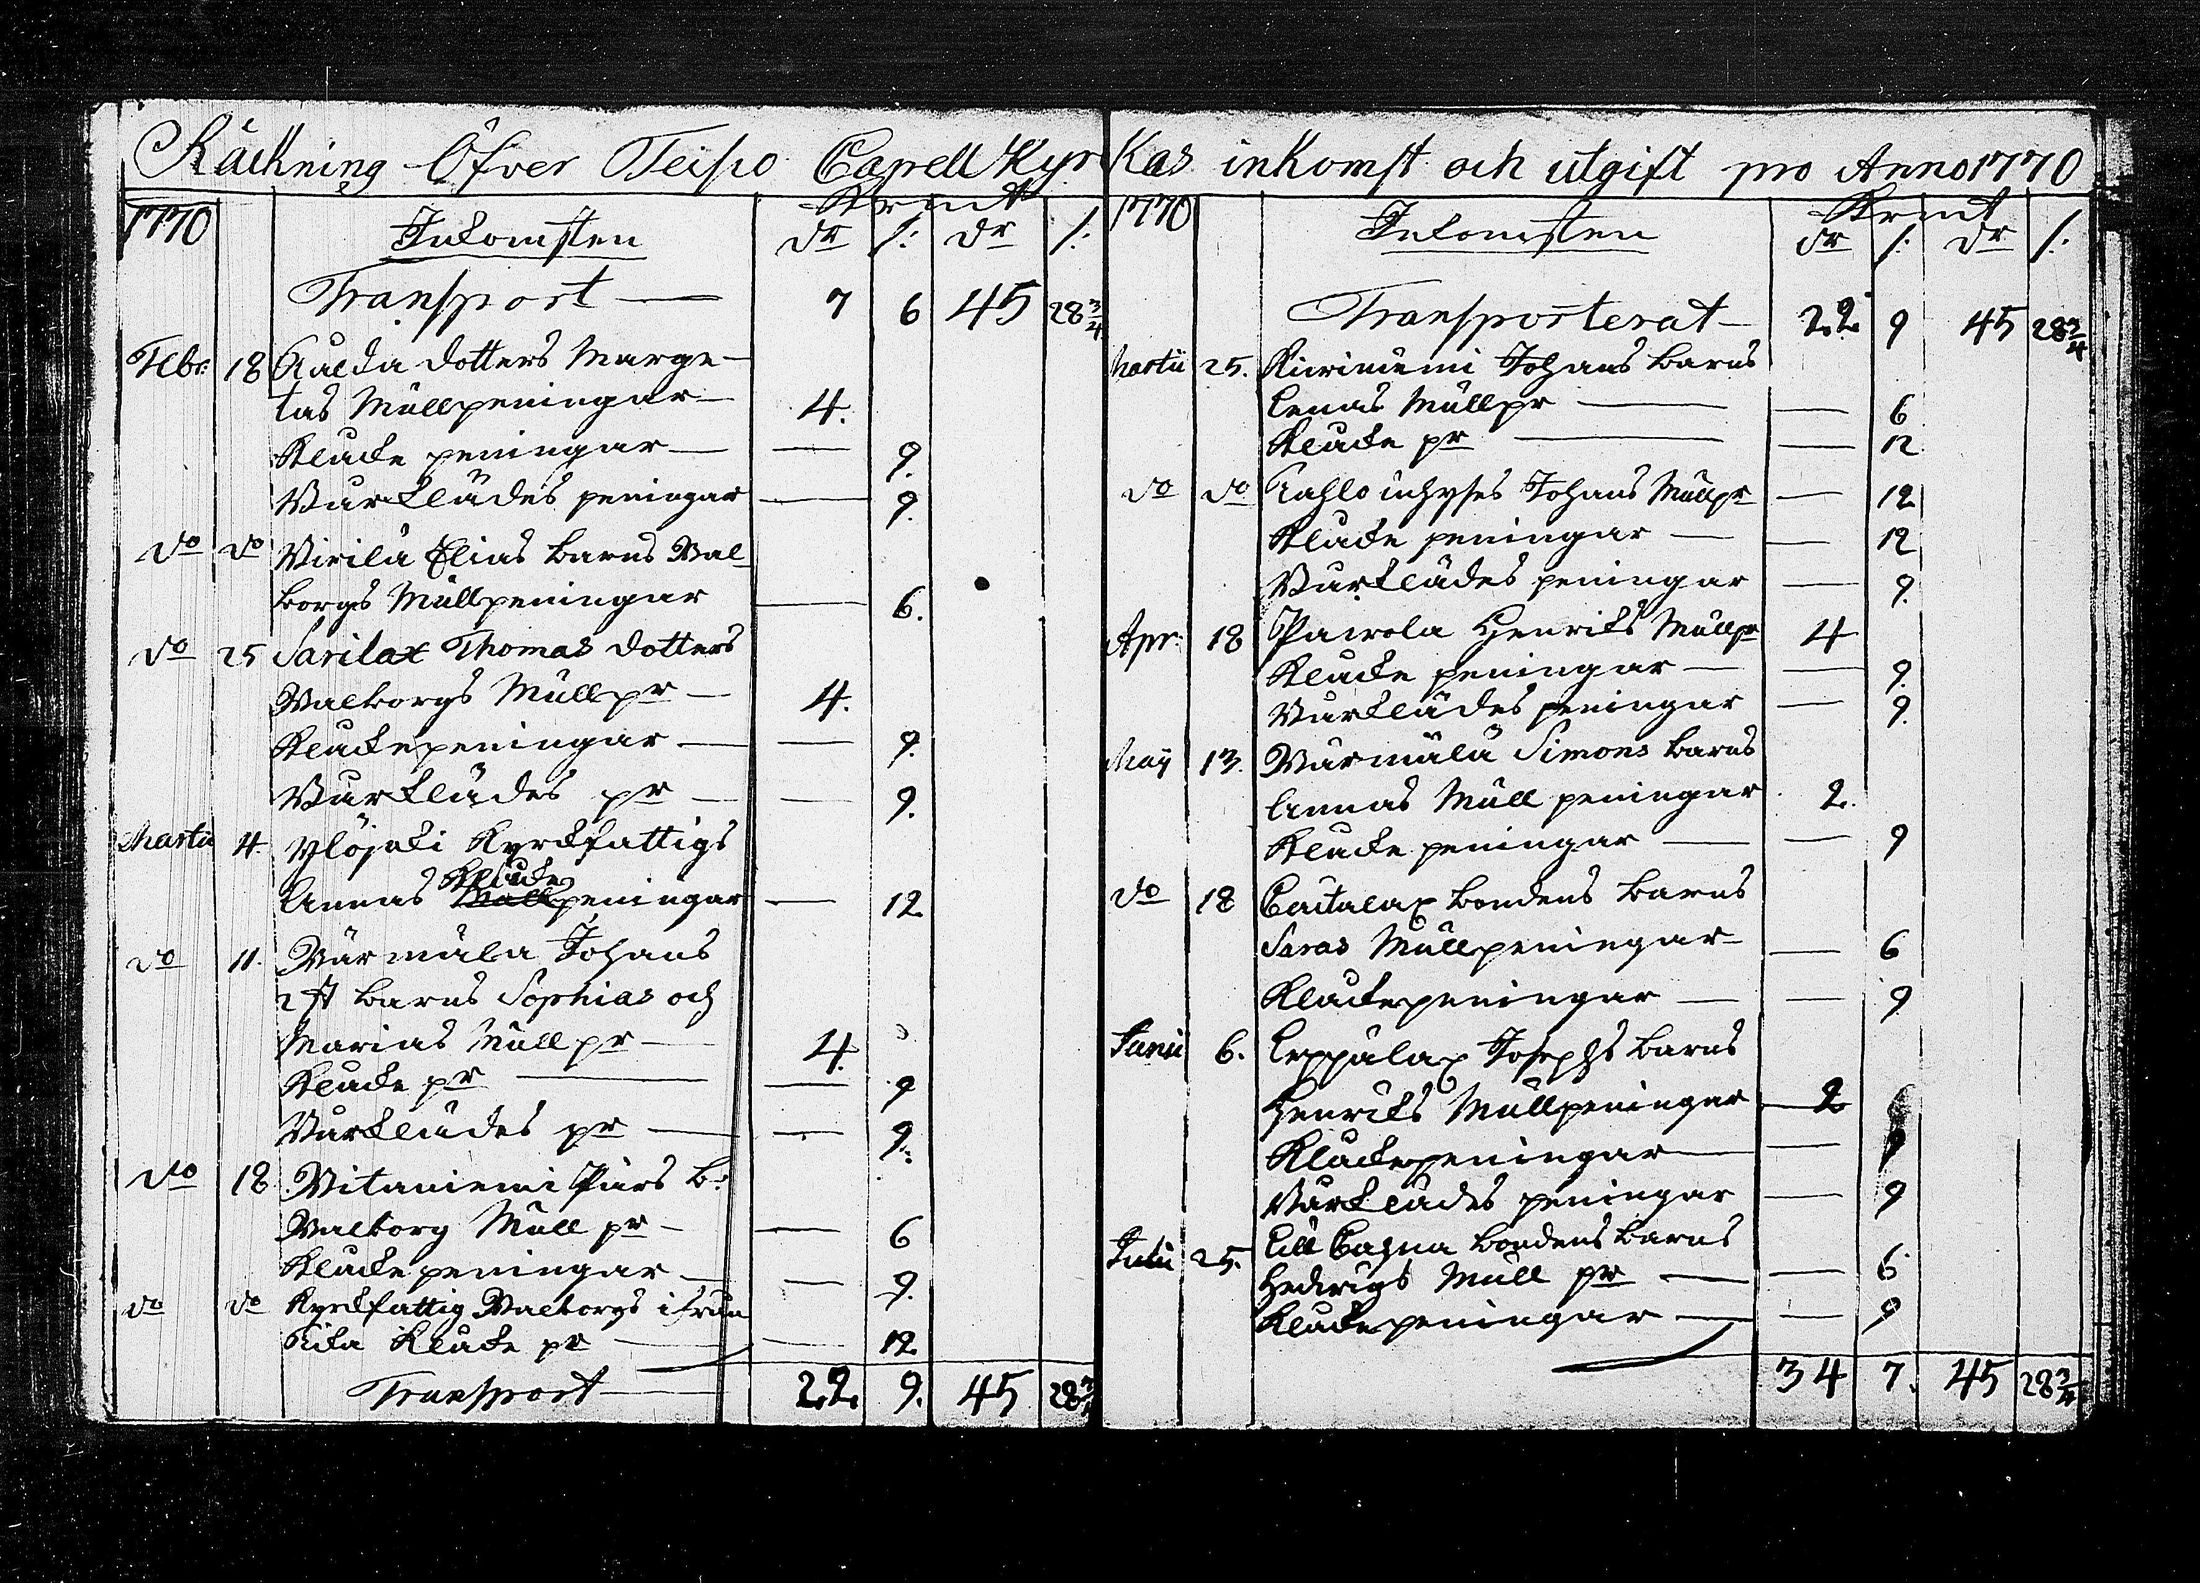 Räckning Öfver Teisko Capell Kyrkas inkomst och utgift pro Anno 1770
1770 Inkomsten Krmt
dr /: dr /:
Transport — 7 6 45 28 3/4
Febr: 18 dotters Marge-
tas Mullpeningar — 4.
Klocke peningar — — 9.
Bårklädes peningar — 9.
do do Virilä Elias Barns Wal-
borgs Mullpeningar — 6.
do 25 Sarilax Thomas dotters
Walborgs Mullpr — 4.
Klockepeningar — — 9.
Bårklädes pr — — 9.
Martii 4. Ylöjäki Kyrckfattigs
Annas Klocke peningar — 12
do 11. Wärmälä Johans
2st barns Sophias och
Marias Mullpr — 4.
Klocke pr — — 9
Bårklädes pr — — 9.
do 18 Vitaniemi Pärs B:
Walborg Mull pr — — 6
Klockepeningar — — 9.
do do Kyrckfattig Walborgs ifrån
Klocke pr — — 12
Transport — 22. 9. 45 28 3/4
1770 Inkomsten Krmt
dr /: dr /:
Transporterat — 22. 9 45 28 3/4
Martii 25. Kiviniemi Johans barns
Lenas Mullpr — — 6
Klocke pr — — 12
do do Johans Mullpr — 12
Klocke peningar — — 12
Bårklädes peningar — 9.
Apr: 18 Pairola Henriks Mullpr 4
Klocke peningar — — 9.
Bårklädes peningar — 9.
Maij 13. Wärmälä Simons barns
Annas Mull peningar 2.
Klocke peningar — — 9
do 18 bondens barns
Saras Mullpeningar — — 6
Klockepeningar — — 9
Junii 6. Leppälax Josephs barns
Henriks Mullpeningar — 2
Klockepeningar — — 9
Bårklädes peningar — 9
Julii 25. Lill bondens barns
Hedvigs Mull pr — — 6
Klockepeningar — — 9
34 7. 45 28 3/4